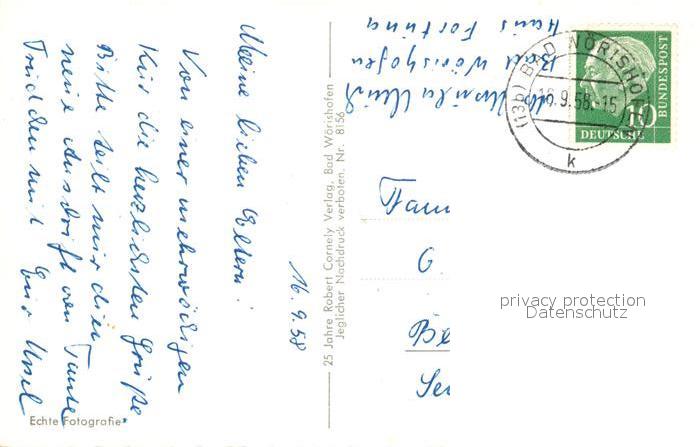 16.9.58
Meine lieben Eltern!
Von einer mehrwöchigen
Kur die herzlichsten Grüße
Bitte teilt mir die
neue Anschrift von Tante
Trudchen mit Eure Ursel
Echte Fotografie
25 Jahre Robert Cornely Verlag, Bad Wörishofen
Jeglicher Nachdruck verboten. Nr. 8156
Ursula
Bad Wörishofen
Haus Fortuna
(13b) BAD WÖRISHOF
16.9.58.-15
k
10
DEUTSCHE
BUNDESPOST
Fam
G
Be
Ser
privacy protection
Datenschutz